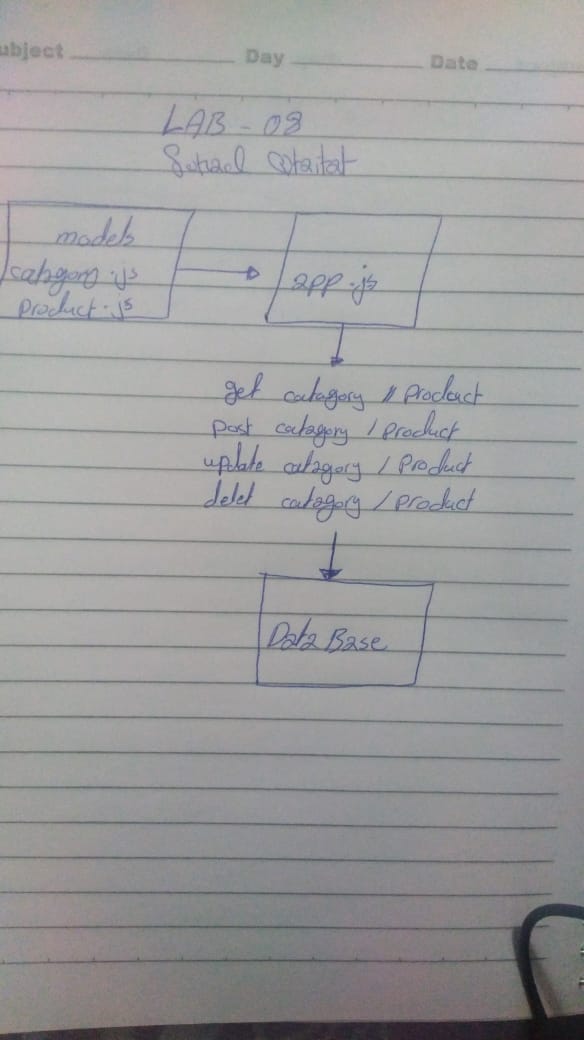 ubject Day Date
LAB - 08
models
category.js
product.js
app.js
get catagory // Product
post catagory / Product
update catagory / Product
delet catagory / product
Data Base